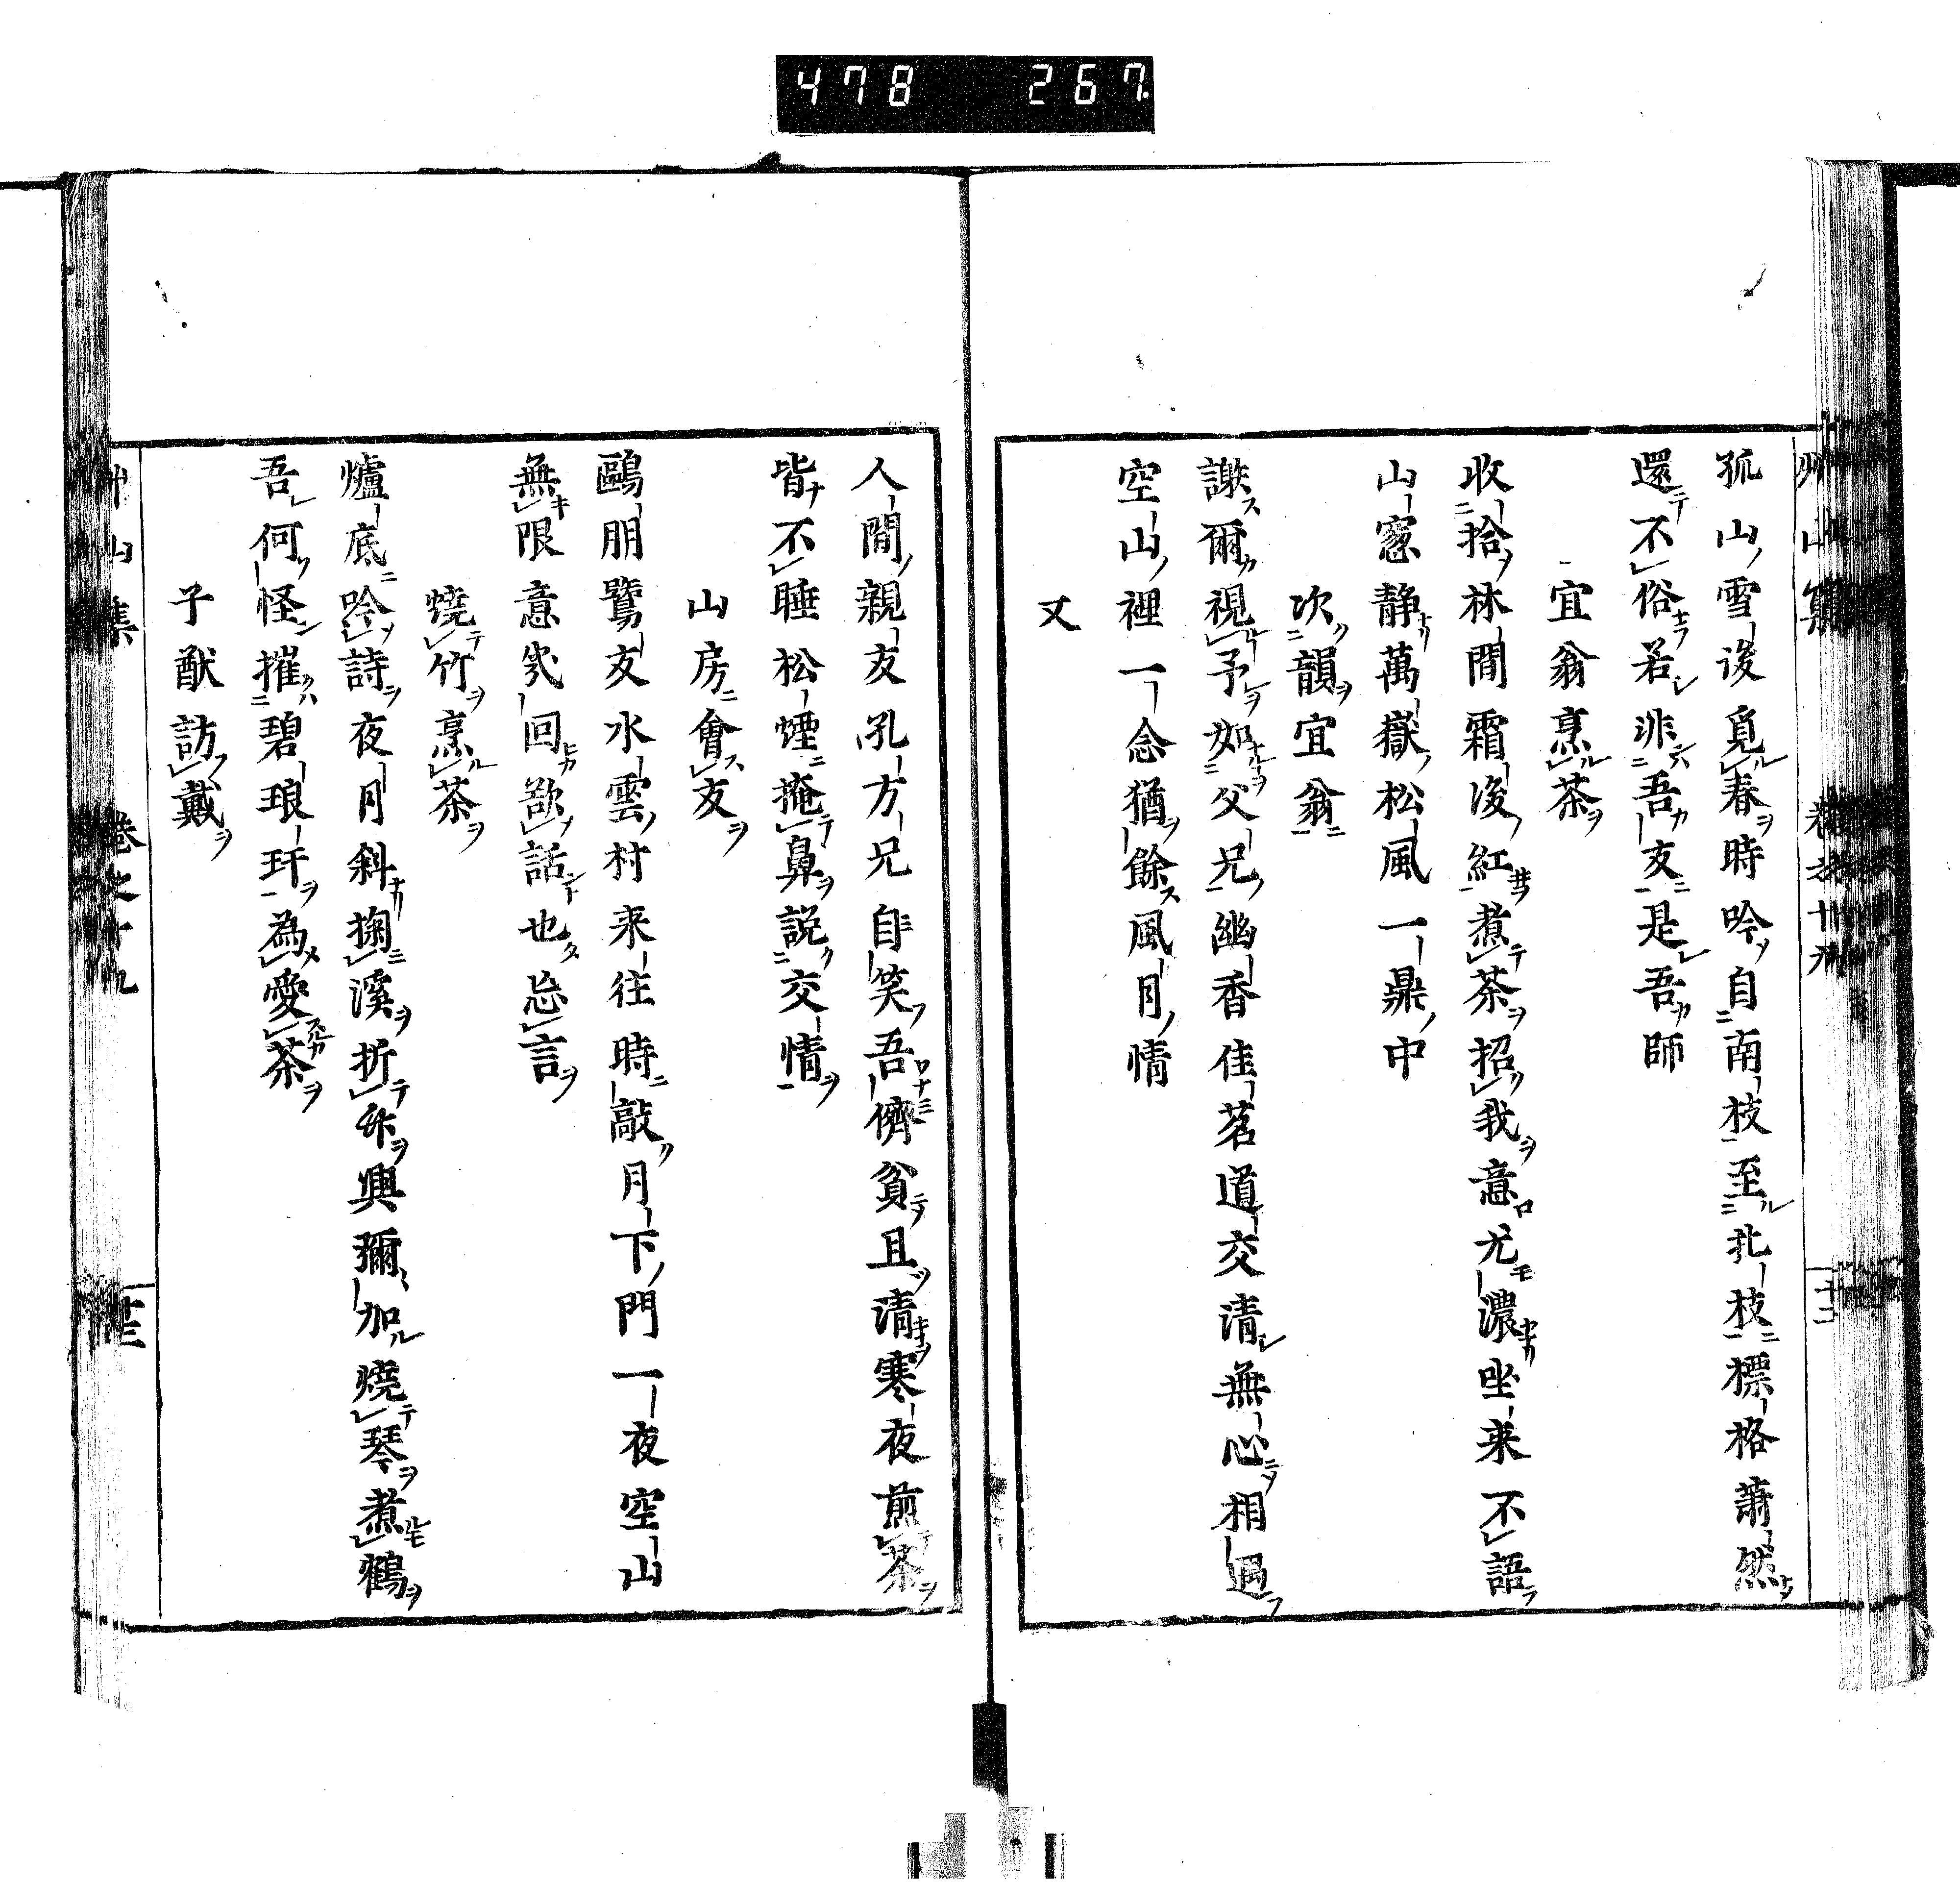 478 267
孤山雪後覓春時吟自南枝至北枝標格蕭然
還不俗若非吾友是吾師
宜翁烹茶
收拾林間霜後紅煮茶招我意尤濃坐来不語
山窓静萬嶽松風一鼎中
次韻宜翁
謝爾視予如父兄幽香佳茗道交清無心相遇
空山裡一念猶餘風月情
又
人間親友孔方兄自笑吾儕貧且清寒夜煎茶
皆不睡松煙掩鼻説交情
山房會友
鷗朋鷺友水雲村来往時敲月下門一夜空山
無限意幾回欲話也忘言
燒竹烹茶
爐底吟詩夜月斜掬溪折竹興彌加燒琴煮鶴
吾何怪摧碧琅玕為愛茶
子猷訪戴
山集 卷之十九